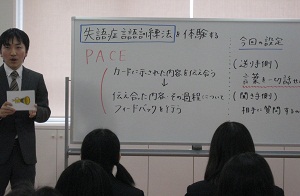 失語症言語訓練法を体験する
PACE
カードに示された内容を伝え合う
↓
伝え合った内容・その過程について
フィードバックを行う
今回の設定
(送り手側)
言葉を一切話せ
(聞き手側)
相手に質問するの